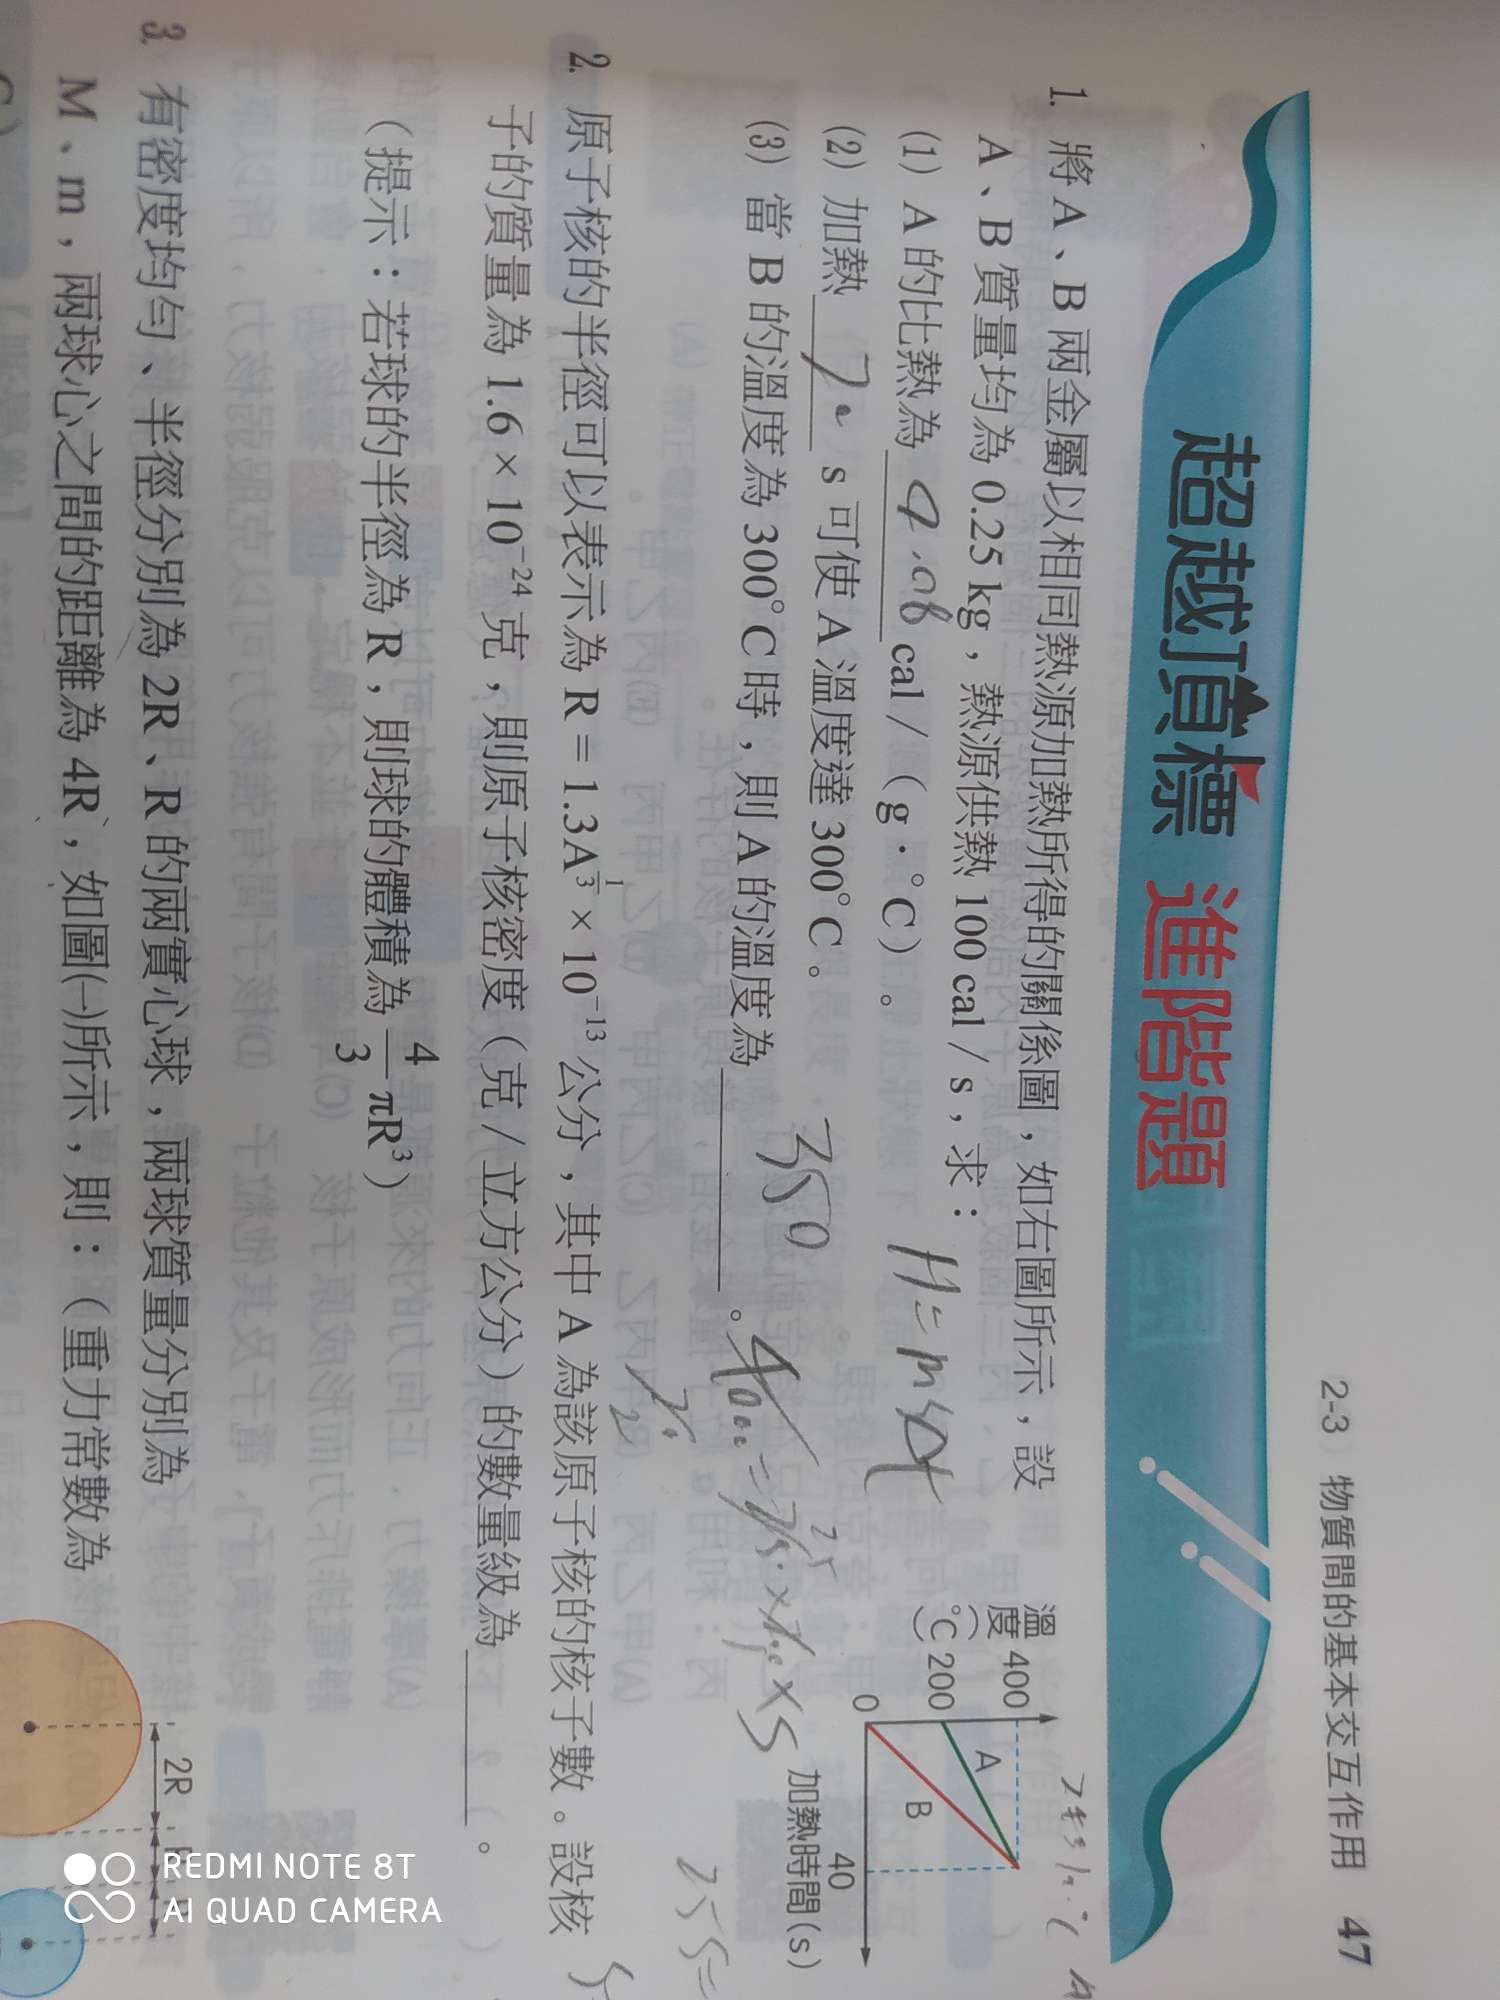 2-3 物質間的基本交互作用 47
超越頂標 進階題
1. 將 A、B 兩金屬以相同熱源加熱所得的關係圖，如右圖所示，設
A、B 質量均為 0.25 kg，熱源供熱 100 cal / s，求：
(1) A 的比熱為 cal /（g·°C）。
(2) 加熱 20 s 可使 A 溫度達 300°C。
(3) 當 B 的溫度為 300°C 時，則 A 的溫度為 。
350
H = ms△t
溫度(°C)
400
200
0
A
B
40
加熱時間(s)
2. 原子核的半徑可以表示為 R = 1.3A^(1/3) × 10⁻¹³ 公分，其中 A 為該原子核的核子數。設核
子的質量為 1.6 × 10⁻²⁴ 克，則原子核密度（克 / 立方公分）的數量級為 。
（提示：若球的半徑為 R，則球的體積為 4/3 πR³）
3. 有密度均勻、半徑分別為 2R、R 的兩實心球，兩球質量分別為
M、m，兩球心之間的距離為 4R，如圖(一)所示，則：（重力常數為
2R
REDMI NOTE 8T
AI QUAD CAMERA